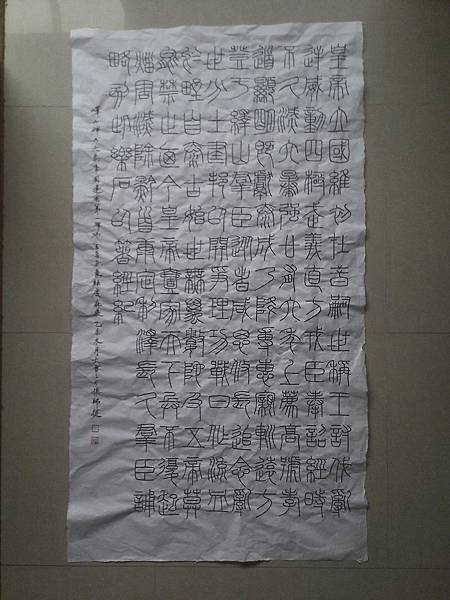 皇帝立國維初在昔嗣世稱王討伐亂
逆威動四極武義直方戎臣奉詔經時
不久滅六暴強廿有六年上薦高號孝
道顯明既獻泰成乃降專惠親巡遠方
登于繹山群臣從者咸思攸長追念亂
世分土建邦以開爭理功戰日作流血
於野自泰古始世無萬數陀及五帝莫
能禁止廼今皇帝壹家天下兵不復起
災害滅除黔首康定利澤長久群臣誦
略刻此樂石以著經紀